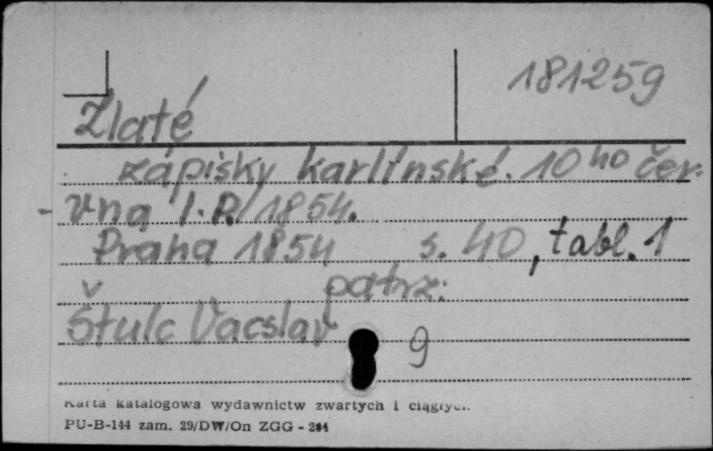 181259
Zlaté
zápisky karlínské. 10ho čer-
vna l.P. 1854.
Praha 1854 s. 40, tabl. 1
patrz:
Štulc Vacslav
9
Karta katalogowa wydawnictw zwartych i ciągłych
PU-B-144 zam. 29/DW/On ZGG - 284